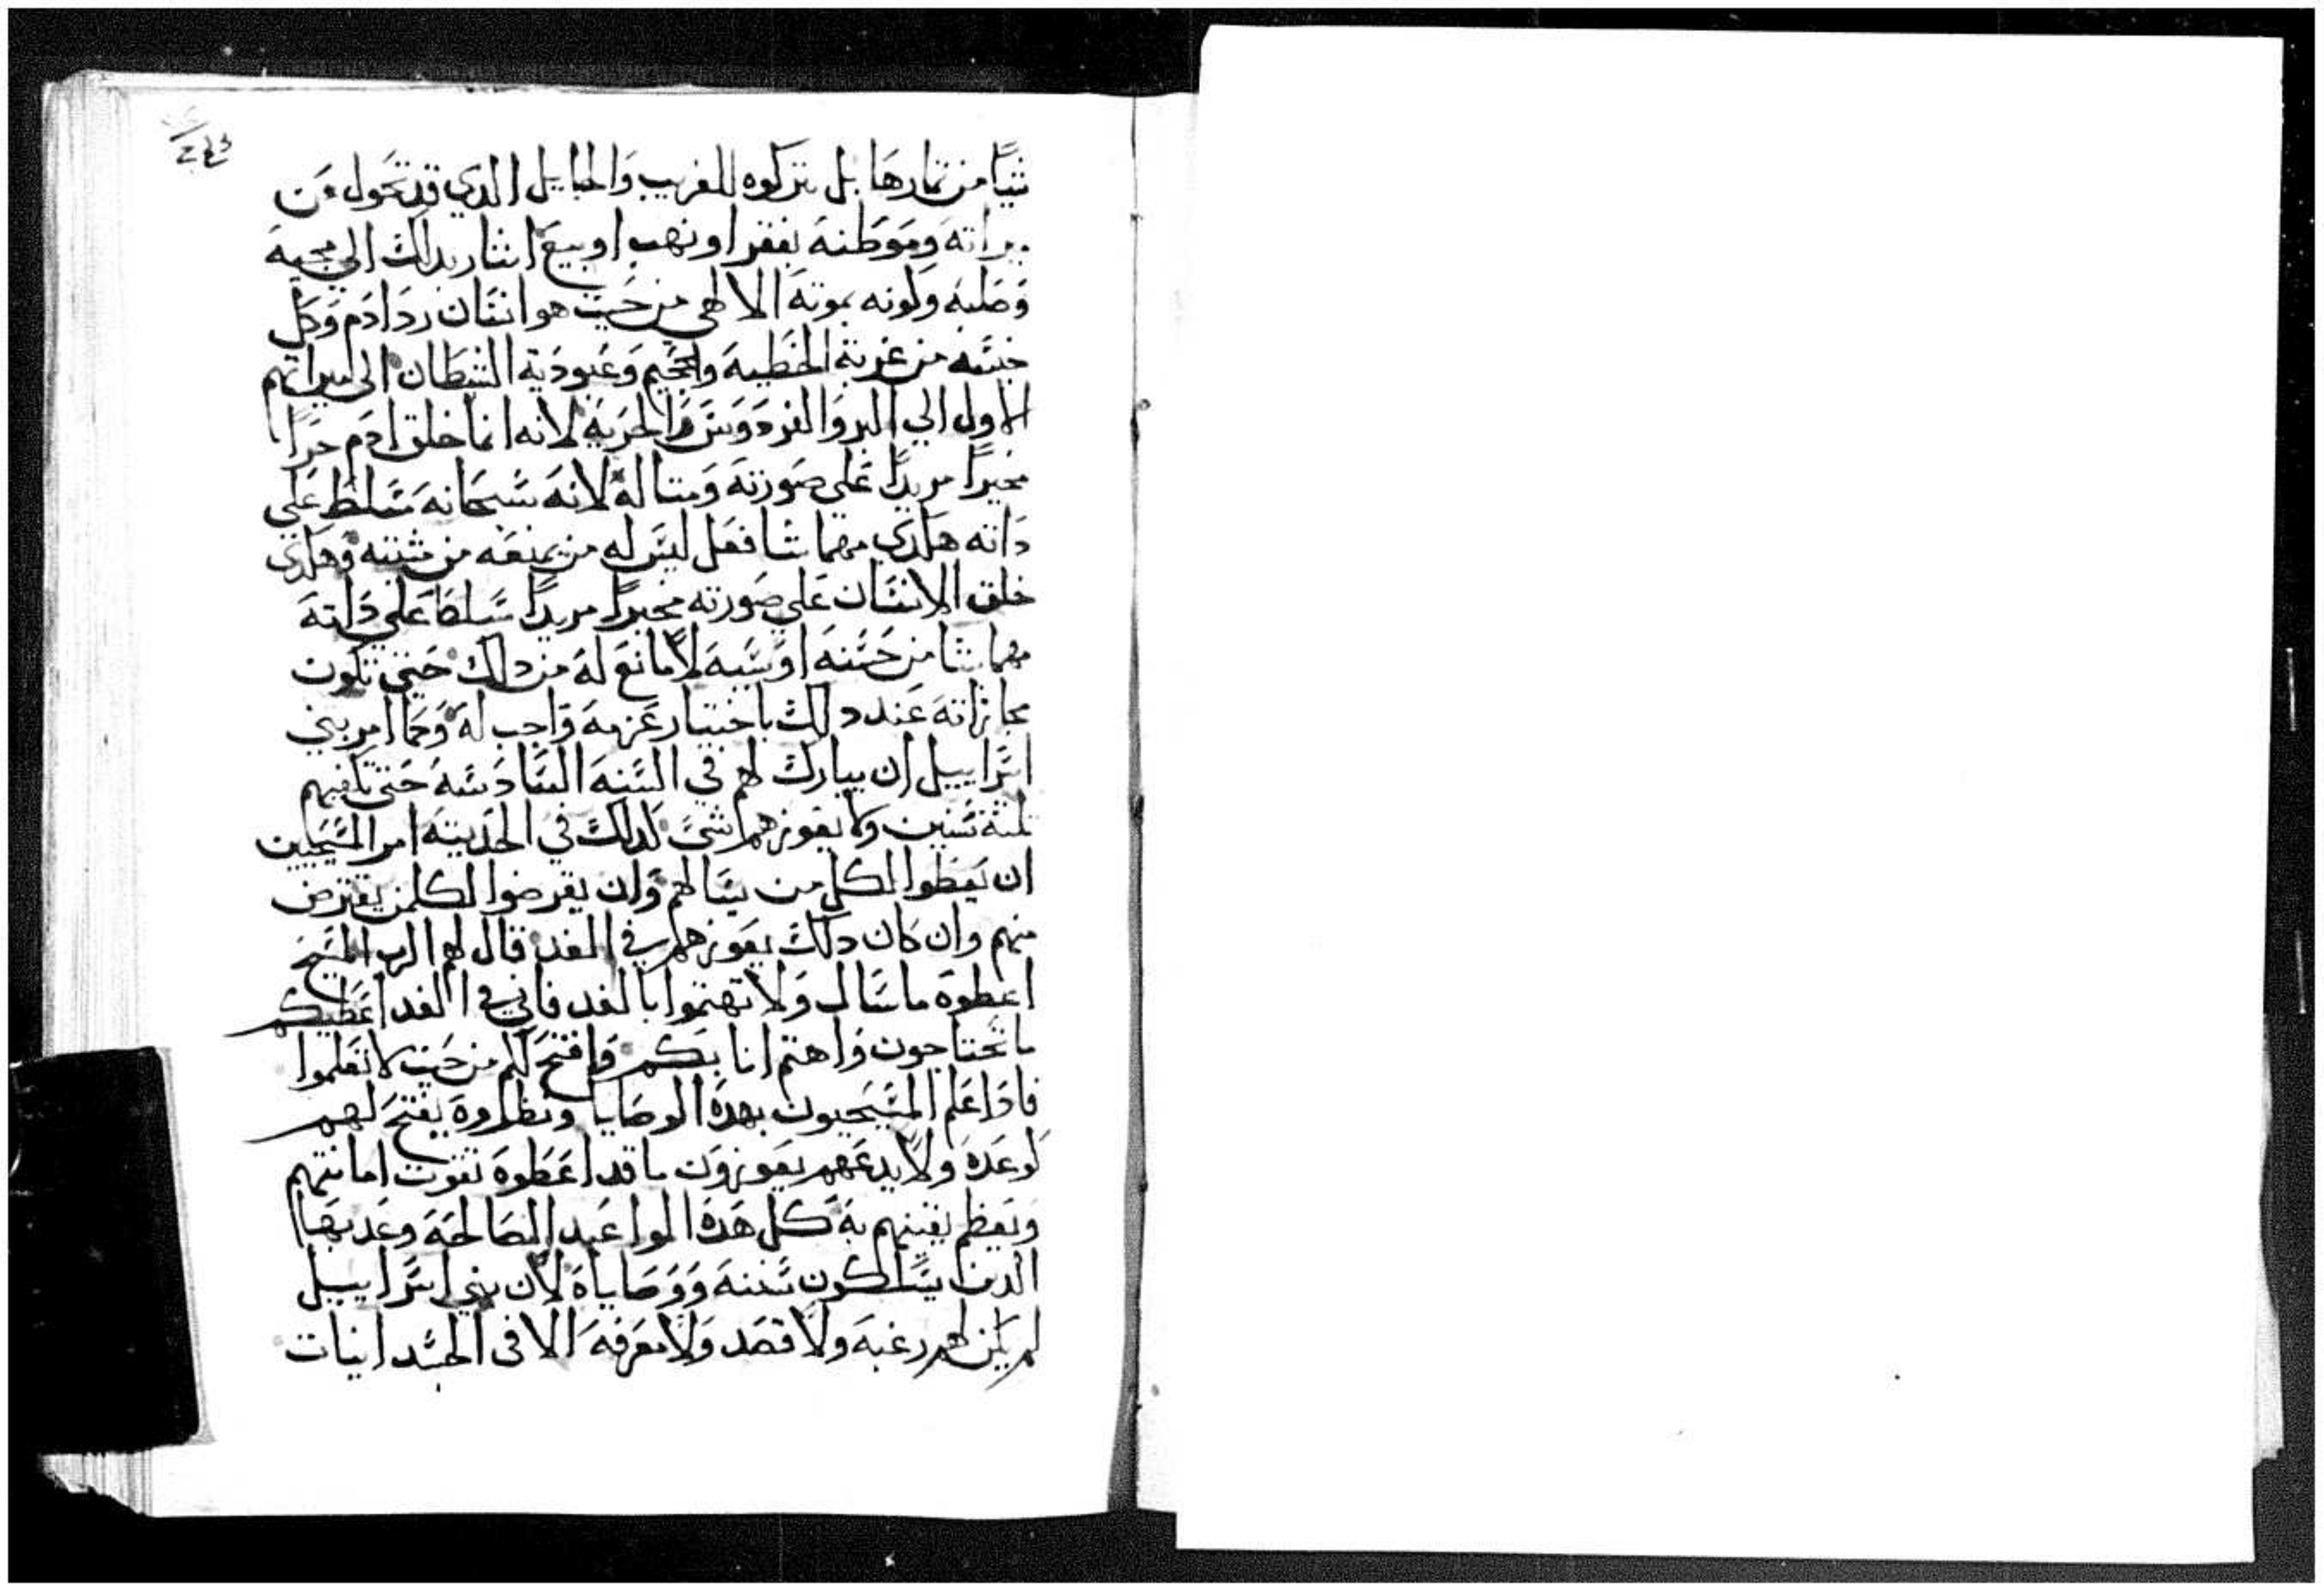 شيا من تمارها بل يتركوه للغريب والجايل الدي قد تحول من
ميراته وموطنه بفقر او نهب او بيع اشار بدلك الي مجيه
وصلبه وكونه بموته الالاهي من حيت هو انسان رد ادم وكل
جنسه من غربة الخطيه والجحيم وعبودية الشيطان الى ميراتهم
الاول الي البر والفردوس والحريه لانه انما خلق ادم حرا
مخيرا مريدا علي صورته ومتاله لانه سبحانه متسلط علي
داته هكدي مهما شا فعل ليس له من يمنعه من مشيته وهكدي
خلق الانسان علي صورته مخيرا مريدا مسلطا علي داته
مهما شا من حسنه او سيه لا مانع له من دلك حتي تكون
مجازاته عند دلك باختيار عزمه واجب له وكما امر بني
اسراييل ان يبارك لهم في السنه السادسه حتي تكفيهم
تلتة سنين ولا يعوزهم شي كدلك في الحديته امر المسيحيين
ان يعطوا لكل من يسالهم وان يقرضوا لكلمن يقترض
منهم وان كان دلك يعوزهم في الغد قال لهم الرب المسيح
اعطوه ما سال ولا تهتموا بالغد فاني في الغد اعطيكم
ما تحتاجون واهتم انا بكم وافتح لكم من حيت لا تعلموا
فادا علم المسيحيون بهده الوصايا ونظروه يفتح لهم
كوعده ولا يدعهم يعوزون ما قد اعطوه تقوت امانتهم
ويعظم يقينهم به كل هده المواعيد الصالحه وعد بها
الدين يسلكون سننه ووصاياه لان بني اسراييل
لم يكن لهم رغبه ولا قصد ولا معرفه الا في الجسدانيات